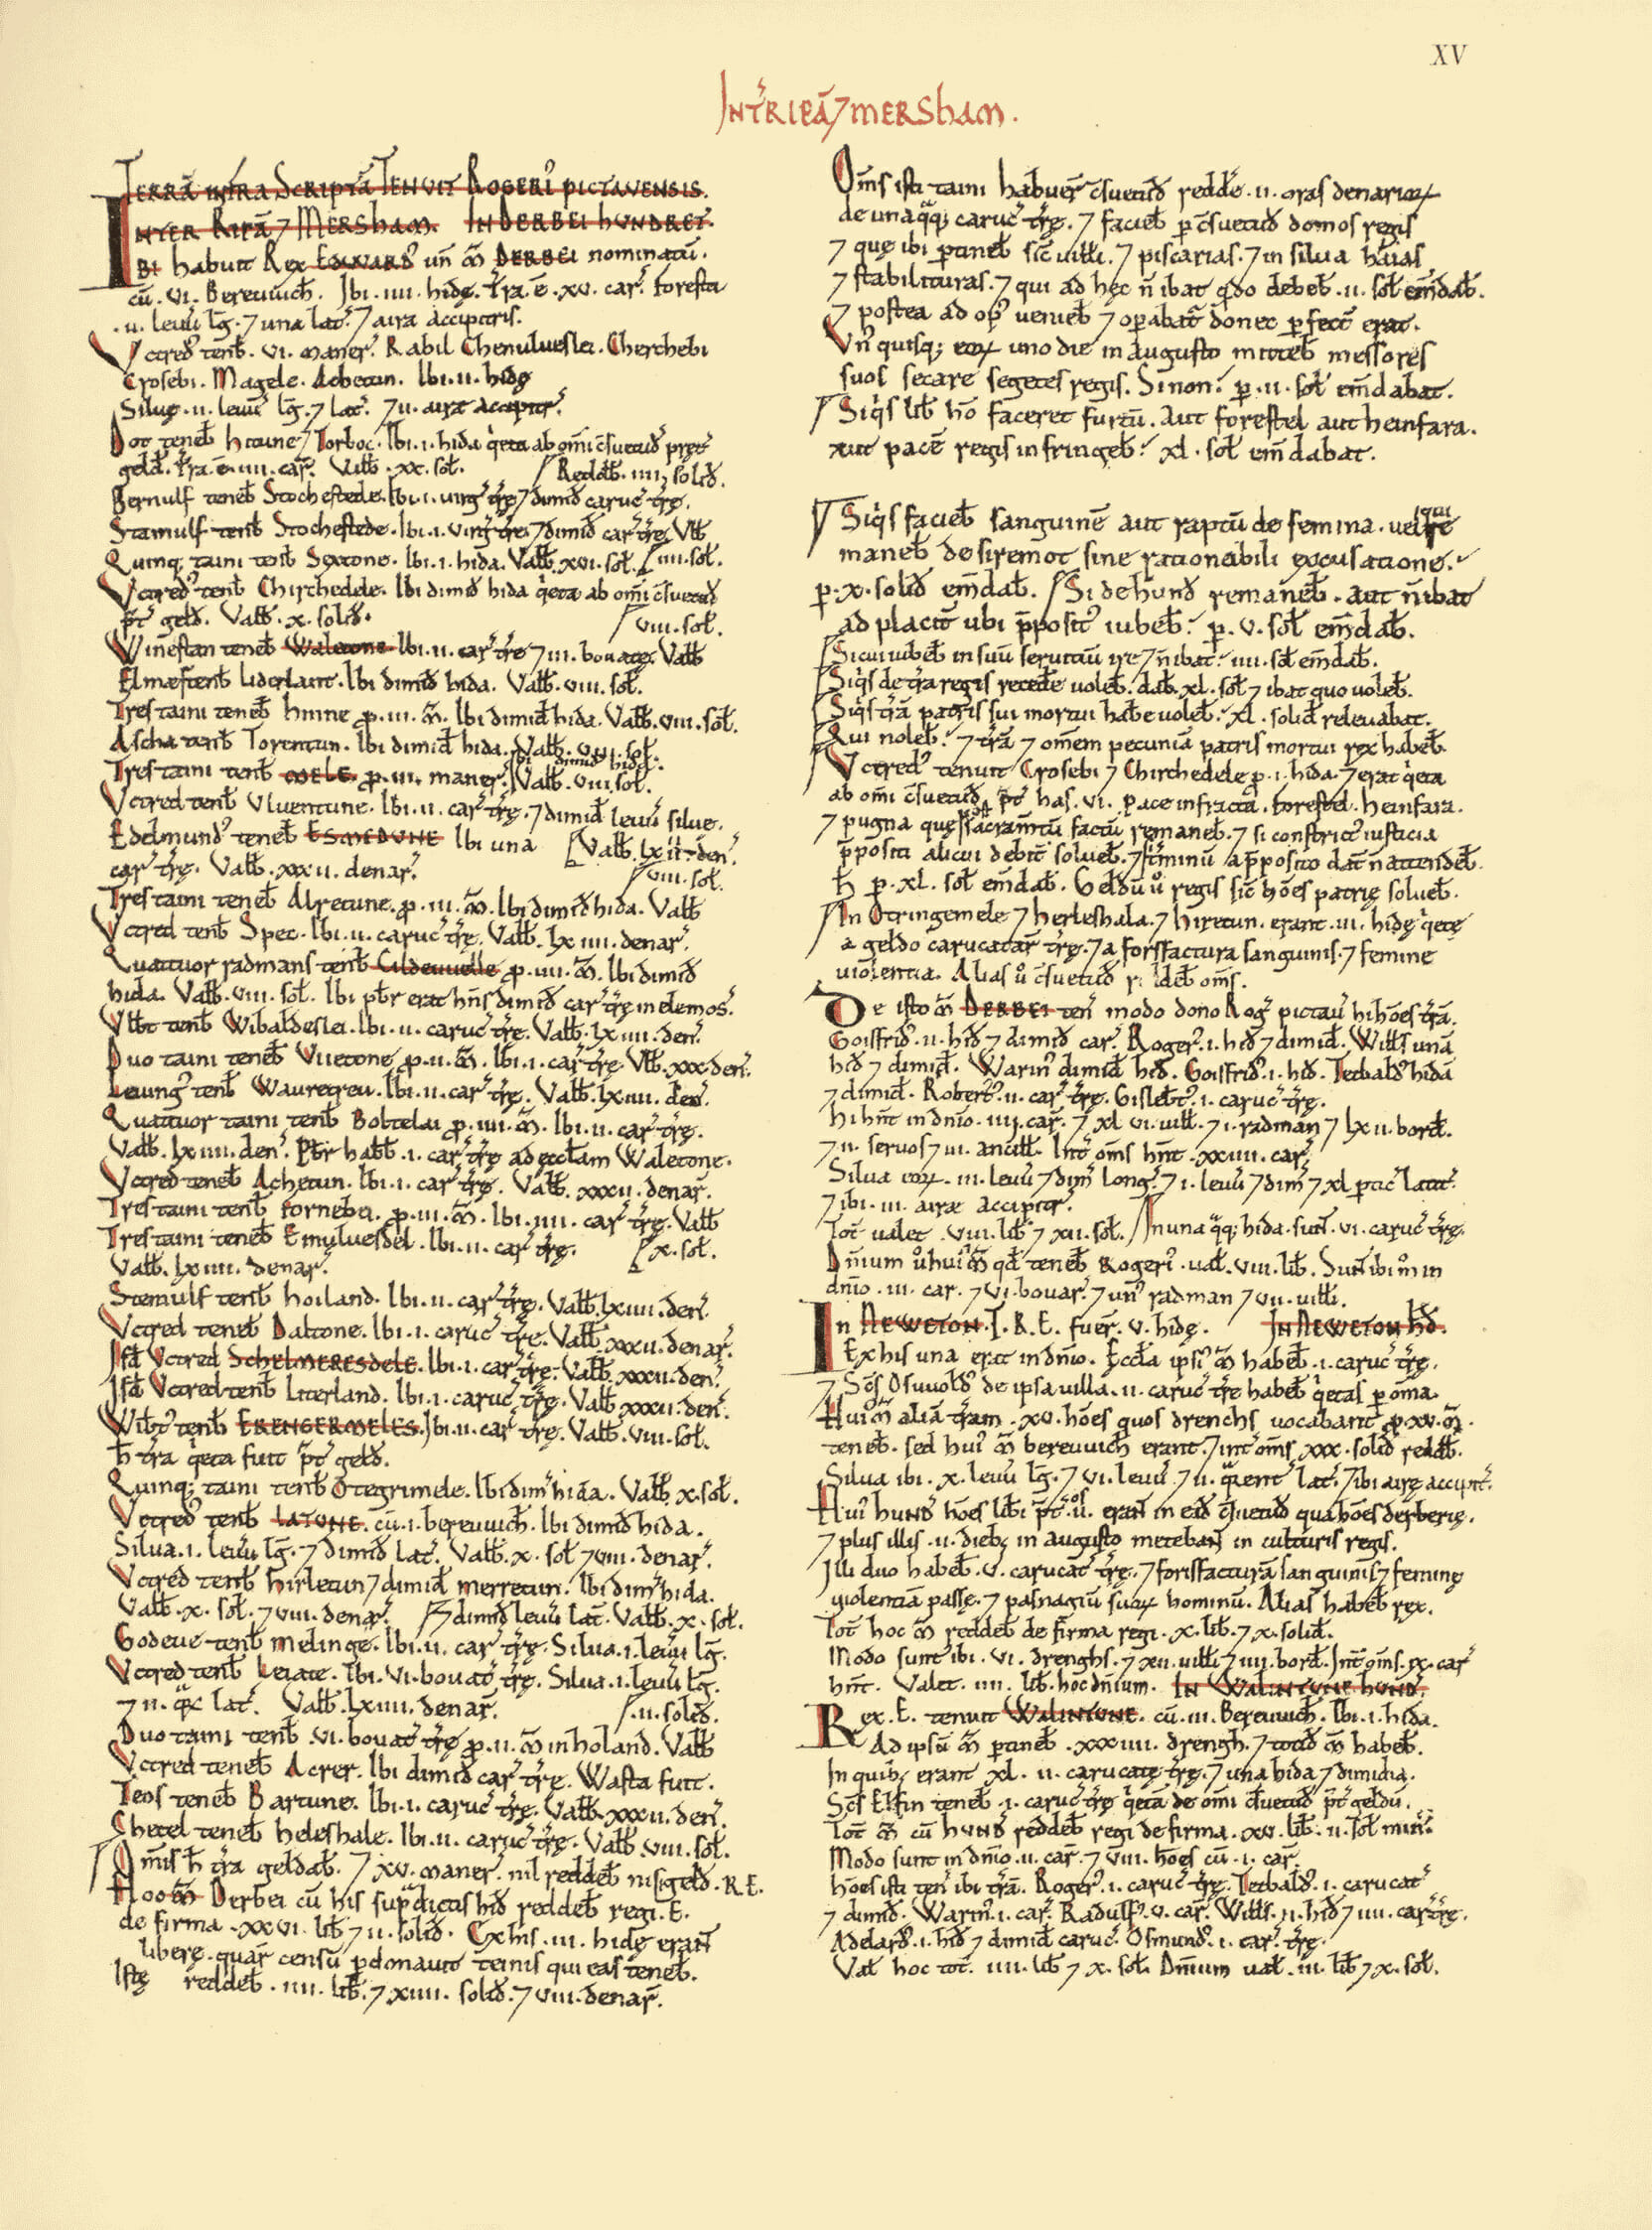 XV
INT' RIPĀ 7 MERSHAM.
TERRĀ INFRA SCRIPTĀ TENUIT ROGERI' PICTAVENSIS.
INTER RIPĀ 7 MERSHAM. IN DERBEI HUNDRET.
IBI habuit Rex EDUUARD' un̄ m̄ DERBEI nominatū.
cū. vi. Bereuuich. Ibi. iiii. hidę. t̄ra. ē. xv. car'. foresta
.ii. leuu' lḡ. 7 una lat'. 7 aira accipitris.
Vctred' teneb̄. vi. maner'. Rabil Chenulueslei. Cherchebi
Crosebi. Magele. Achetun. Ibi. ii. hidę
Siluę. ii. leuu' lḡ. 7 lat'. 7 ii. airæ accipitr'.
Dot teneb̄ hitune 7 Torboc. Ibi. i. hida q'eta ab om̄i c̄suetud' pręt'
geld'. t̄ra. ē. iiii. car'. Valb̄. xx. sol'.
Reddeb̄. iiii. solid'.
Bernulf teneb̄ Stochestede. Ibi. i. uirg' t̄rę 7 dimid' caruc' t̄rę.
Stainulf teneb̄ Stochestede. Ibi. i. uirg' t̄rę 7 dimid' car' t̄rę. Valb̄
Quinq; taini teneb̄ Sextone. Ibi. i. hida. Valb̄. xvi. sol'. [iiii. sol'.
Vctred' teneb̄ Chirchedele. Ibi dimid' hida q'eta ab om̄i c̄suetud'
p̄t' geld'. Valb̄. x. solid'.
[viii. sol'.
Winestan teneb̄ Waletone. Ibi. ii. car' t̄rę 7 iii. bouatę. Valb̄
Elmær teneb̄ Liderlant. Ibi dimid' hida. Valb̄. viii. sol'.
Tres taini teneb̄ hinne p̱. iii. m̄. Ibi dimid' hida. Valb̄. viii. sol'.
Ascha teneb̄ Torentun. Ibi dimid' hida. Valb̄. viii. sol'.
Ibi dimid' hida.
Tres taini teneb̄ MELE p̱. iii. maner'. Valb̄. viii. sol'.
Vctred teneb̄ Vluentune. Ibi. ii. car' t̄rę. 7 dimid' leuu' siluę.
Edelmund' teneb̄ ESMEDUNE Ibi una [Valb̄. lxiiii. den'.
car' t̄rę. Valb̄. xxxii. denar'.
[viii. sol'.
Tres taini teneb̄ Alretune. p̱. iii. m̄. Ibi dimid' hida. Valb̄
Vctred teneb̄ Spec. Ibi. ii. caruc' t̄rę. Valb̄. lxiiii. denar'.
Quattuor radmans teneb̄ Cildeuuelle p̱. iiii. m̄. Ibi dimid'
hida. Valb̄. viii. sol'. Ibi pb̄r erat hn̄s dimid' car' t̄rę in elemos'.
Vlb̄t teneb̄ Wibaldeslei. Ibi. ii. caruc' t̄rę. Valb̄. lxiiii. den'.
Duo taini teneb̄ Vuetone p̱. ii. m̄. Ibi. i. car' t̄rę. Valb̄. xxx. den'.
Leuing' teneb̄ Wauretreu. Ibi. ii. car' t̄rę. Valb̄. lxiiii. den'.
Quattuor taini teneb̄ Boltelai p̱. iiii. m̄. Ibi. ii. car' t̄rę.
Valb̄. lxiiii. den'. Pb̄r habb̄. i. car' t̄rę ad ęccl'am Waletone.
Vctred teneb̄ Achetun. Ibi. i. car' t̄rę. Valb̄. xxxii. denar'.
Tres taini teneb̄ fornebei. p̱. iii. m̄. Ibi. iiii. car' t̄rę. Valb̄
Tres taini teneb̄ Emuluesdel. Ibi. ii. car' t̄rę. [x. sol'.
Valb̄. lxiiii. denar'.
Steinulf teneb̄ hoiland. Ibi. ii. car' t̄rę. Valb̄. lxiiii. den'.
Vctred teneb̄ Daltone. Ibi. i. caruc' t̄rę. Valb̄. xxxii. denar'.
Isd̄ Vctred Schelmeresdele. Ibi. i. car' t̄rę. Valb̄. xxxii. den'.
Isd̄ Vctred teneb̄ Literland. Ibi. i. caruc' t̄rę. Valb̄. xxxii. den'.
Wib̄t' teneb̄ ERENGERMELES. Ibi. ii. car' t̄rę. Valb̄. viii. sol'.
h̄ t̄ra q'eta fuit p̄t' geld'.
Quinq; taini teneb̄ Otegrimele. Ibi dim' hida. Valb̄. x. sol'.
Vctred' teneb̄ LATUNE. cū. i. bereuuich. Ibi dimid' hida.
Silua. i. leuu' lḡ. 7 dimid' lat'. Valb̄. x. sol' 7 viii. denar'.
Vctred teneb̄ hirletun 7 dimid' merretun. Ibi dim' hida.
Valb̄. x. sol'. 7 viii. denar'. [7 dimid' leuu' lat'. Valb̄. x. sol'.
Godeue teneb̄ melinge. Ibi. ii. car' t̄rę. Silua. i. leuu' lḡ.
Vctred teneb̄ Leiate. Ibi. vi. bouat' t̄rę. Silua. i. leuu' lḡ.
7 ii. q̄r' lat'. Valb̄. lxiiii. denar'. [.ii. solid'.
Duo taini teneb̄. vi. bouat' t̄rę p̱. ii. m̄ in holand. Valb̄
Vctred teneb̄ Acrer. Ibi dimid' car' t̄rę. Wasta fuit.
Teos teneb̄ Bartune. Ibi. i. caruc' t̄rę. Valb̄. xxxii. den'.
Chetel teneb̄ heleshale. Ibi. ii. caruc' t̄rę. Valb̄. viii. sol'.
Om̄is h̄ t̄ra geldab̄. 7 xv. maner'. nil reddeb̄ nisi geld'. R.E.
Hoc m̄ Derbei cū his sup̱dictis hid' reddeb̄ regi. E.
de firma. xxvi. lib' 7 ii. solid'. Ex his. iii. hidę eran̄t
liberę. quar' censū p̱donauit teinis qui eas teneb̄.
Istę reddeb̄. iiii. lib'. 7 xiiii. solid'. 7 viii. denar'.
Om̄s isti taini habuer̄ c̄suetud' redde'. ii. oras denarioꝝ
de unaq̄q; caruc' t̄rę. 7 facieb̄ p̱ c̄suetud' domos regis
7 quę ibi p̱tineb̄ sic̄ uill'i. 7 piscarias. 7 in silua haias
7 stabilituras. 7 qui ad hęc n̄ ibat q̄do debeb̄. ii. sol' em̄dab̄.
7 postea ad op' ueniebat 7 operabat' donec p̱fect' erat.
Vn' quisq; eoꝝ uno die in augusto mitteb̄ messores
suos secare segetes regis. Sinon. p̱. ii. sol' em̄dabat.
Siq's lib' hō faceret furtū. aut forestel aut heinfara.
aut pacē regis infringeb̄. xl. sol' em̄dabat.
Siq's facieb̄ sanguinē aut raptū de femina. uel qui re
maneb̄ de siremot sine rationabili excusatione.
p̱. x. solid' em̄dab̄. Si de hund' remaneb̄. aut n̄ ibat
ad placit' ubi p̄posit' iubeb̄. p̱. v. sol' em̄dab̄.
Si cui iubeb̄ in suū seruitiū ire 7 n̄ ibat. iiii. sol' em̄dab̄.
Siq's de t̄ra regis recede' uoleb̄. dab̄. xl. sol' 7 ibat quo uoleb̄.
Siq's t̄rā patris sui mortui habe' uoleb̄. xl. solid' releuabat.
Qui noleb̄. 7 t̄rā 7 omēm pecuniā patris mortui rex habeb̄.
Vctred' tenuit Crosebi 7 Chirchedele p̱. i. hida. 7 erat q'eta
ab om̄i c̄suetud' p̄t' has. vi. pace infracta. forestel. heinfara.
7 pugna quę p' sacram̄tū factū remaneb̄. 7 si constrict' iusticia
p̄positi alicui debit' solueb̄. 7 t'minū a p̄posito dat' n̄ attendeb̄.
h̄ p̱. xl. sol' em̄dab̄. Geldū u° regis sic̄ hōes patrię solueb̄.
In Otringemele 7 herleshala. 7 hiretun. erant. iii. hidę q'etę
a geldo carucatar' t̄rę. 7 a forisfactura sanguinis. 7 femine
uiolentia. Alias u° c̄suetud' r' ldeb̄ om̄s.
De isto m̄ DERBEI ten' modo dono Rog' pictau' hi hōes t̄rā.
Goisfrid'. ii. hid' 7 dimid' car'. Roger'. i. hid' 7 dimid'. Will's unā
hid' 7 dimid'. Warin' dimid' hid'. Goisfrid'. i. hid'. Tetbald' hidā
7 dimid'. Robert'. ii. car' t̄rę. Gislebt'. i. caruc' t̄rę.
Hi hn̄t in dn̄io. iiii. car'. 7 xlvi. uill' 7 i. radman 7 lxii. bord'.
7 ii. seruos 7 iii. ancill'. Int' om̄s hn̄t. xxiiii. car'.
Silua eoꝝ. iii. leuu' 7 dim' long'. 7 i. leuu' 7 dim' 7 xl p̱tic' latit'.
7 ibi. iii. airæ accipitr'.
Tot' ualet. viii. lib' 7 xii. sol'. In una q̄q; hida. sun̄t. vi. caruc' t̄rę.
Dn̄ium u° hui' m̄ qd' teneb̄ Rogeri'. ual'. viii. lib'. Sun̄t ibi m° in
dn̄io. iii. car. 7 vi. bouar'. 7 un' radman 7 vii. uill'i.
In NEWETON. T.R.E. fuer'. v. hidę. IN NEWETON HD̄.
Ex his una erat in dn̄io. Eccl'a ipsi' m̄ habeb̄. i. caruc' t̄rę.
7 Sc̄s Osuuold' de ipsa uilla. ii. caruc' t̄rę habeb̄ q'etas p̱ om̄a.
Hui' m̄ aliā t̄ram. xv. hōes quos drenchs uocabant p̱ xv. m̄.
teneb̄. sed hui' m̄ bereuuich erant. 7 int' om̄s xxx. solid' reddb̄.
Silua ibi. x. leuu' lḡ. 7 vi. leuu' 7 ii. q̄rent' lat'. 7 ibi airę accipit'.
Hui' HUND' hōes lib'i p̄t' ii'os. eran̄t in ead' c̄suetud' qua hōes derberię.
7 plus illis. ii. dieb; in augusto meteban̄t in culturis regis.
Illi duo habeb̄. v. carucat' t̄rę. 7 forisfacturā sanguinis 7 feminę
uiolentiā passę. 7 pasnagiū suoꝝ hominū. Alias habeb̄ rex.
Tot' hoc m̄ reddeb̄ de firma regi. x. lib'. 7 x. solid'.
Modo sunt ibi. vi. drenghs. 7 xii. uill'i 7 iiii. bord'. Int' om̄s. ix. car'
hn̄t. Valet. iiii. lib'. hoc dn̄ium. IN WALINTUNE HUND'.
Rex. E. tenuit WALINTUNE. cū. iii. Bereuuich. Ibi. i. hida.
Ad ipsū m̄ p̱tineb̄. xxxiiii. drengh. 7 totid' m̄ habeb̄.
In quib; erant xl. ii. carucatę t̄rę. 7 una hida 7 dimidia.
Sc̄s Elfin teneb̄. i. caruc' t̄rę q'etā de om̄i c̄suetud' p̄t' geldū.
Tot' m̄ cū HUND' reddeb̄ regi de firma. xv. lib'. ii. sol' min'.
Modo sunt in dn̄io. ii. car'. 7 viii. hōes cū. i. car'.
hōes isti ten' ibi t̄rā. Roger'. i. caruc' t̄rę. Tetbald'. i. carucat'
7 dimid'. Warin'. i. car'. Radulf'. v. car'. Will's. ii. hid' 7 iiii. car' t̄rę.
Adelard'. i. hid' 7 dimid' caruc'. Osmund'. i. car' t̄rę.
Val' hoc tot'. iiii. lib' 7 x. sol'. Dn̄ium ual'. iii. lib' 7 x. sol'.